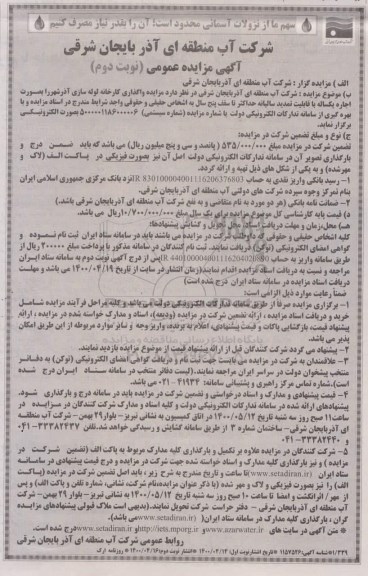 سهم ما از نزولات آسمانی محدود است! آن را بقدر نیاز مصرف کنیم
شرکت آب منطقه ای آذربایجان شرقی
آگهی مزایده عمومی (نوبت دوم)
الف ) مزایده گزار : شرکت آب منطقه ای آذربایجان شرقی
ب) موضوع مزایده : شرکت آب منطقه ای آذربایجان شرقی در نظر دارد مزایده واگذاری کارخانه لوله سازی آذرشهر را بصورت
اجاره یکساله با قابلیت تمدید سالیانه حداکثر تا سقف پنج سال به اشخاص حقیقی و حقوقی واجد شرایط مندرج در اسناد مزایده و با
بهره گیری از سامانه تدارکات الکترونیکی دولت با شماره مزایده (شماره سیستمی) ۵۰۰۰۰۰۱۱۸۶۰۰۰۰۰۶ بصورت الکترونیکی
برگزار نماید.
ج) نوع و مبلغ تضمین شرکت در مزایده:
تضمین شرکت در مزایده مبلغ ۵۳۵/۰۰۰/۰۰۰ ( پانصد و سی و پنج میلیون ریال) می باشد که باید ضمن درج و
بارگذاری تصویر آن در سامانه تدارکات الکترونیکی دولت اصل آن نیز بصورت فیزیکی در پاکت الف (لاک و
مهر شده) و به یکی از شکل های ذیل تهیه و ارائه گردد.
۱- رسید بانکی واریز نقدی به حساب IR 830100004001116206376603 نزد بانک مرکزی جمهوری اسلامی ایران
بنام تمرکز وجوه سپرده شرکت های دولتی آب منطقه ای آذربایجان شرقی.
۲- ضمانت نامه بانکی (هر دو مورد به نام متقاضی و به نفع شرکت آب منطقه ای آذربایجان شرقی باشد).
د) قیمت پایه کارشناسی کل موضوع مزایده برای یک سال مبلغ ۱۰/۷۰۰/۰۰۰/۰۰۰ ریال می باشد.
ه) محل،زمان و مهلت دریافت اسناد، محل تحویل و گشایش پیشنهادها:
کلیه اشخاص حقیقی و حقوقی که داوطلب شرکت در مزایده می باشند باید در سامانه ستاد ایران ثبت نام نموده و
گواهی امضای الکترونیکی (توکن) دریافت نمایند. ثبت نام کنندگان در سامانه مذکور با پرداخت مبلغ ۲۰۰۰۰۰ ریال از
طریق سامانه واریز به حساب پس از درج آگهی نوبت دوم به سامانه ستاد ایران
مراجعه و نسبت به دریافت اسناد مزایده اقدام نمایند(زمان انتشار در سایت از تاریخ ۱۴۰۰/۰۴/۱۹ می باشد و مهلت
دریافت اسناد مزایده در سامانه ستاد ایران درج شده است)
ضمنا رعایت موارد ذیل الزامی است:
۱- برگزاری مزایده صرفا از طریق سامانه تدارکات الکترونیکی دولت می باشد و کلیه مراحل فرآیند مزایده شامل
خرید و دریافت اسناد مزایده ، ارائه تضمین شرکت در مزایده (ودیعه)، اسناد و مدارک خواسته شده در مزایده ، ارائه
پیشنهاد قیمت، بازگشایی پاکات و قیمت پیشنهادی، اعلام به برنده، واریز وجه و سایر موارد مربوطه از این طریق امکان
پذیر می باشد.
۲- پیشنهاد می گردد شرکت کنندگان قبل از ارائه پیشنهاد قیمت از موضوع مزایده بازدید نمایند.
۳- علاقمندان به شرکت در مزایده می بایست جهت ثبت نام و دریافت گواهی امضای الکترونیکی (توکن) به دفاتر
منتخب پیشخوان دولت در سراسر ایران مراجعه نمایند.(لیست دفاتر منتخب در سامانه ستاد ایران درج شده
است).شماره تماس مرکز راهبری و پشتیبانی سامانه: ۴۱۹۳۴-۰۲۱ می باشد.
۴- قیمت پیشنهادی و مدارک و اسناد درخواستی و تضمین شرکت در مزایده باید در سامانه درج و بارگذاری شود.
پیشنهادهای ارائه شده در سامانه تدارکات الکترونیکی دولت و کلیه اسناد و مدارک شرکت کنندگان در مزایده در
ساعت ۱۱ صبح روز سه شنبه تاریخ ۱۴۰۰/۰۵/۱۲ در اتاق کمیسیون به نشانی تبریز- بلوار ۲۹ بهمن- شرکت آب منطقه
ای آذربایجان شرقی- ساختمان شماره ۳ از طریق سامانه گشایش و رسیدگی خواهد شد.تلفن ۳۳۳۸۲۴۳۷-۰۴۱
و ۳۳۳۸۲۴۴۰-۰۴۱
۵- شرکت کنندگان در مزایده علاوه بر تکمیل و بارگذاری کلیه مدارک مربوط به پاکت الف (تضمین شرکت در
مزایده ) و نیز بارگذاری کلیه مدارک و اسناد خواسته شده جهت شرکت در مزایده و درج قیمت پیشنهادی در سامانه
ستاد ایران (www.setadiran.ir) تا ساعت و تاریخ مندرج به شرح زیر، باید اصل تضمین شرکت در مزایده (پاکت
الف) را نیز بصورت فیزیکی و لاک و مهر شده (با ذکر عنوان مزایده،نام شرکت، نشانی، شماره تلفن و پاکت الف) و پس
از مهر و امضا تا ساعت ۱۰ صبح روز سه شنبه تاریخ ۱۴۰۰/۰۵/۱۲ به نشانی تبریز- بلوار ۲۹ بهمن- شرکت
آب منطقه ای آذربایجان شرقی - دفتر حراست شرکت تحویل نمایند.(بدیهی است ملاک قبولی پیشنهادهای مزایده
گران ، بارگذاری کلیه مدارک در سامانه ستاد ایران( www.setadiran.ir)می باشد).
* متن آگهی در سایت های www.azarwater.ir و http://iets.mporg.ir و www.setadiran.ir درج شده است.
روابط عمومی شرکت آب منطقه ای آذربایجان شرقی
شناسه آگهی: ۱۱۵۷۵۲۶ تاریخ انتشار نوبت اول: ۱۴۰۰/۰۴/۱۴ انتشار نوبت دوم: ۱۴۰۰/۰۴/۱۶ * روزنامه ارک